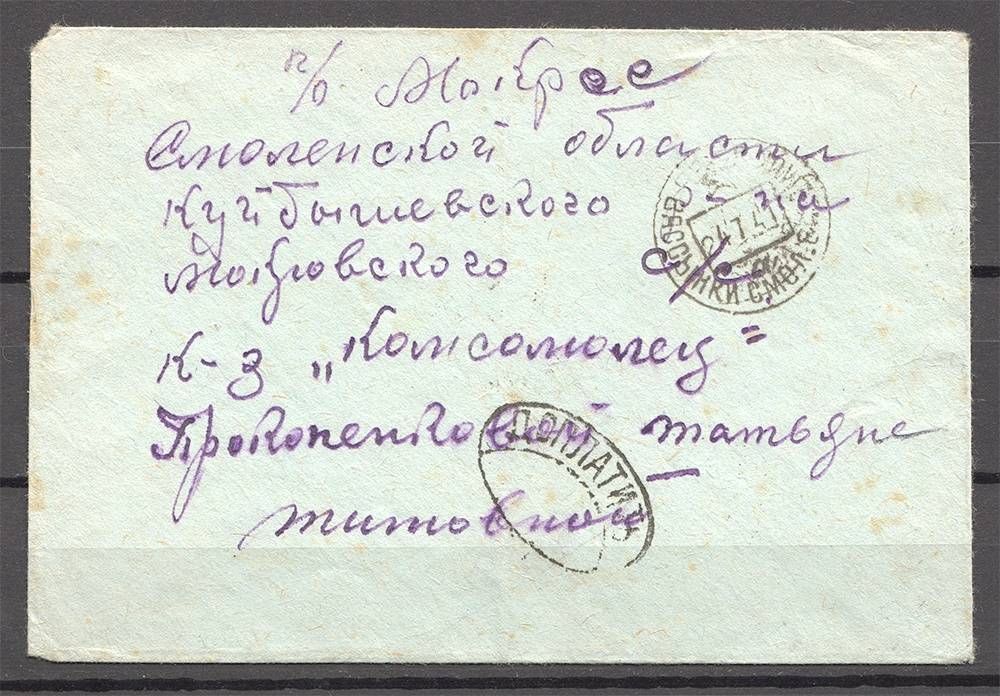 п/о Мокрое
Смоленской области
Куйбышевского р-на
с/с
к-з „Комсомолец"
Прокопенковой Татьяне
Титовной
ВЫСОЦ НКИ СМОЛ.
24 7 41
ДОПЛАТИТЬ